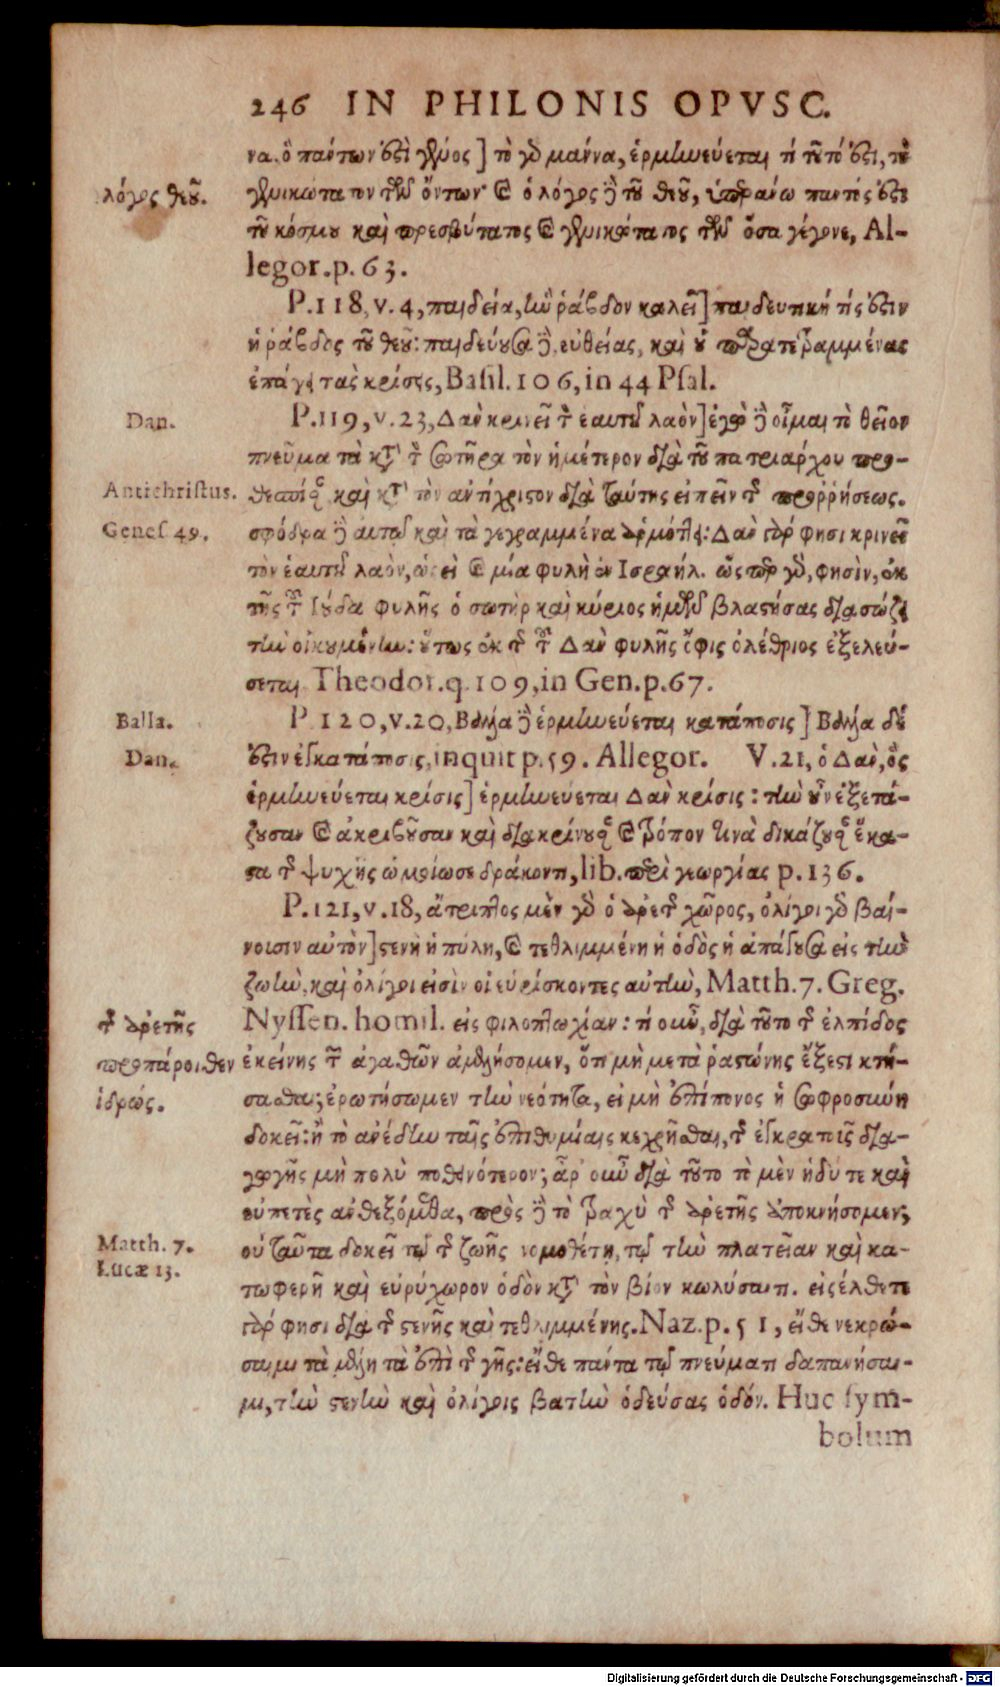 246 IN PHILONIS OPVSC.
να. ὁ πάντων ἐστὶ γένος] τὸ γὸ μάννα, ἑρμηνεύεται τί τοῦτό ἐστι, τὸ
λόγος θεοῦ.
γενικώτατον τῶν ὄντων· καὶ ὁ λόγος δὲ τοῦ θεοῦ, ὑπεράνω παντός ἐστι
τοῦ κόσμου καὶ πρεσβύτατος καὶ γενικώτατος τῶν ὅσα γέγονε, Al-
legor. p. 63.
P. 118, v. 4, παιδεία, ἣν ῥάβδον καλεῖ] παιδευτική τίς ἐστιν
ἡ ῥάβδος τοῦ θεοῦ: παιδεύουσα δὲ, εὐθείας, καὶ οὐ παρατετραμμένας
ἐπάγει τὰς κρίσεις, Basil. 106, in 44 Psal.
Dan.
P. 119, v. 23, Δὰν κρινεῖ τὸν ἑαυτοῦ λαὸν] ἐγὼ δὲ οἶμαι τὸ θεῖον
πνεῦμα τὰ κατὰ τὸν σωτῆρα τὸν ἡμέτερον διὰ τοῦ πατριάρχου προ-
Antichristus.
θεσπίσαν καὶ κατὰ τὸν ἀντίχριστον διὰ ταύτης εἰπεῖν τῆς προῤῥήσεως.
Genes. 49.
σφόδρα δὲ αὐτῷ καὶ τὰ γεγραμμένα ἁρμόττει: Δὰν γάρ φησι κρινεῖ
τὸν ἑαυτοῦ λαὸν, ὡσεὶ καὶ μία φυλὴ ἐν Ισραήλ. ὥσπερ γὸ, φησὶν, ἐκ
τῆς τοῦ Ιούδα φυλῆς ὁ σωτὴρ καὶ κύριος ἡμῶν βλαστήσας διασώζει
τὴν οἰκουμένην: οὕτως ἐκ τῆς τοῦ Δὰν φυλῆς ὄφις ὀλέθριος ἐξελεύ-
σεται Theodor. q. 109, in Gen. p. 67.
Balla.
P. 120, v. 20, Βαλλά δὲ ἑρμηνεύεται κατάποσις] Βαλλά δέ
Dan.
ἐστιν ἐγκατάποσις, inquit p. 59. Allegor. V. 21, ὁ Δὰν, ὃς
ἑρμηνεύεται κρίσις] ἑρμηνεύεται Δὰν κρίσις: τὴν οὖν ἐξετά-
ζουσαν καὶ ἀκριβοῦσαν καὶ διακρίνουσαν καὶ τρόπον τινὰ δικάζουσαν ἕκα-
στα τῆς ψυχῆς ὡμοίωσε δράκοντι, lib. περὶ γεωργίας p. 136.
P. 121, v. 18, ἄτριπτος μὲν γὸ ὁ ἀρετῆς χῶρος, ὀλίγοι γὸ βαί-
νουσιν αὐτὸν] στενὴ ἡ πύλη, καὶ τεθλιμμένη ἡ ὁδὸς ἡ ἀπάγουσα εἰς τὴν
ζωὴν, καὶ ὀλίγοι εἰσὶν οἱ εὑρίσκοντες αὐτὴν, Matth. 7. Greg.
τῆς ἀρετῆς
Nyssen. homil. εἰς φιλοπτωχίαν: τί οὖν, διὰ τοῦτο τῆς ἐλπίδος
προπάροιθεν
ἐκείνης τῶν ἀγαθῶν ἀμελήσομεν, ὅτι μὴ μετὰ ῥαστώνης ἔξεστι κτή-
ἱδρώς.
σασθαι; ἐρωτήσωμεν τὴν νεότητα, εἰ μὴ ἐπίπονος ἡ σωφροσύνη
δοκεῖ: ἢ τὸ ἀνέδην ταῖς ἐπιθυμίαις κεχρῆσθαι, τῆς ἐγκρατοῦς δια-
γωγῆς μὴ πολὺ ποθεινότερον; ἆρ' οὖν διὰ τοῦτο τὸ μὲν ἡδύ τε καὶ
εὐπετὲς ἀνθεξόμεθα, πρὸς δὲ τὸ τραχὺ τῆς ἀρετῆς ἀποκνήσομεν;
Matth. 7.
οὐ ταῦτα δοκεῖ τῷ τῆς ζωῆς νομοθέτῃ, τῷ τὴν πλατεῖαν καὶ κα-
Lucæ 13.
τωφερῆ καὶ εὐρύχωρον ὁδὸν κατὰ τὸν βίον κωλύσαντι. εἰσέλθετε
γάρ φησι διὰ τῆς στενῆς καὶ τεθλιμμένης. Naz. p. 51, εἴθε νεκρώ-
σαιμι τὰ μέλη τὰ ἐπὶ τῆς γῆς: εἴθε πάντα τῷ πνεύματι δαπανήσαι-
μι, τὴν στενὴν καὶ ὀλίγοις βατὴν ὁδεύσας ὁδόν. Huc sym-
bolum
Digitalisierung gefördert durch die Deutsche Forschungsgemeinschaft - DFG